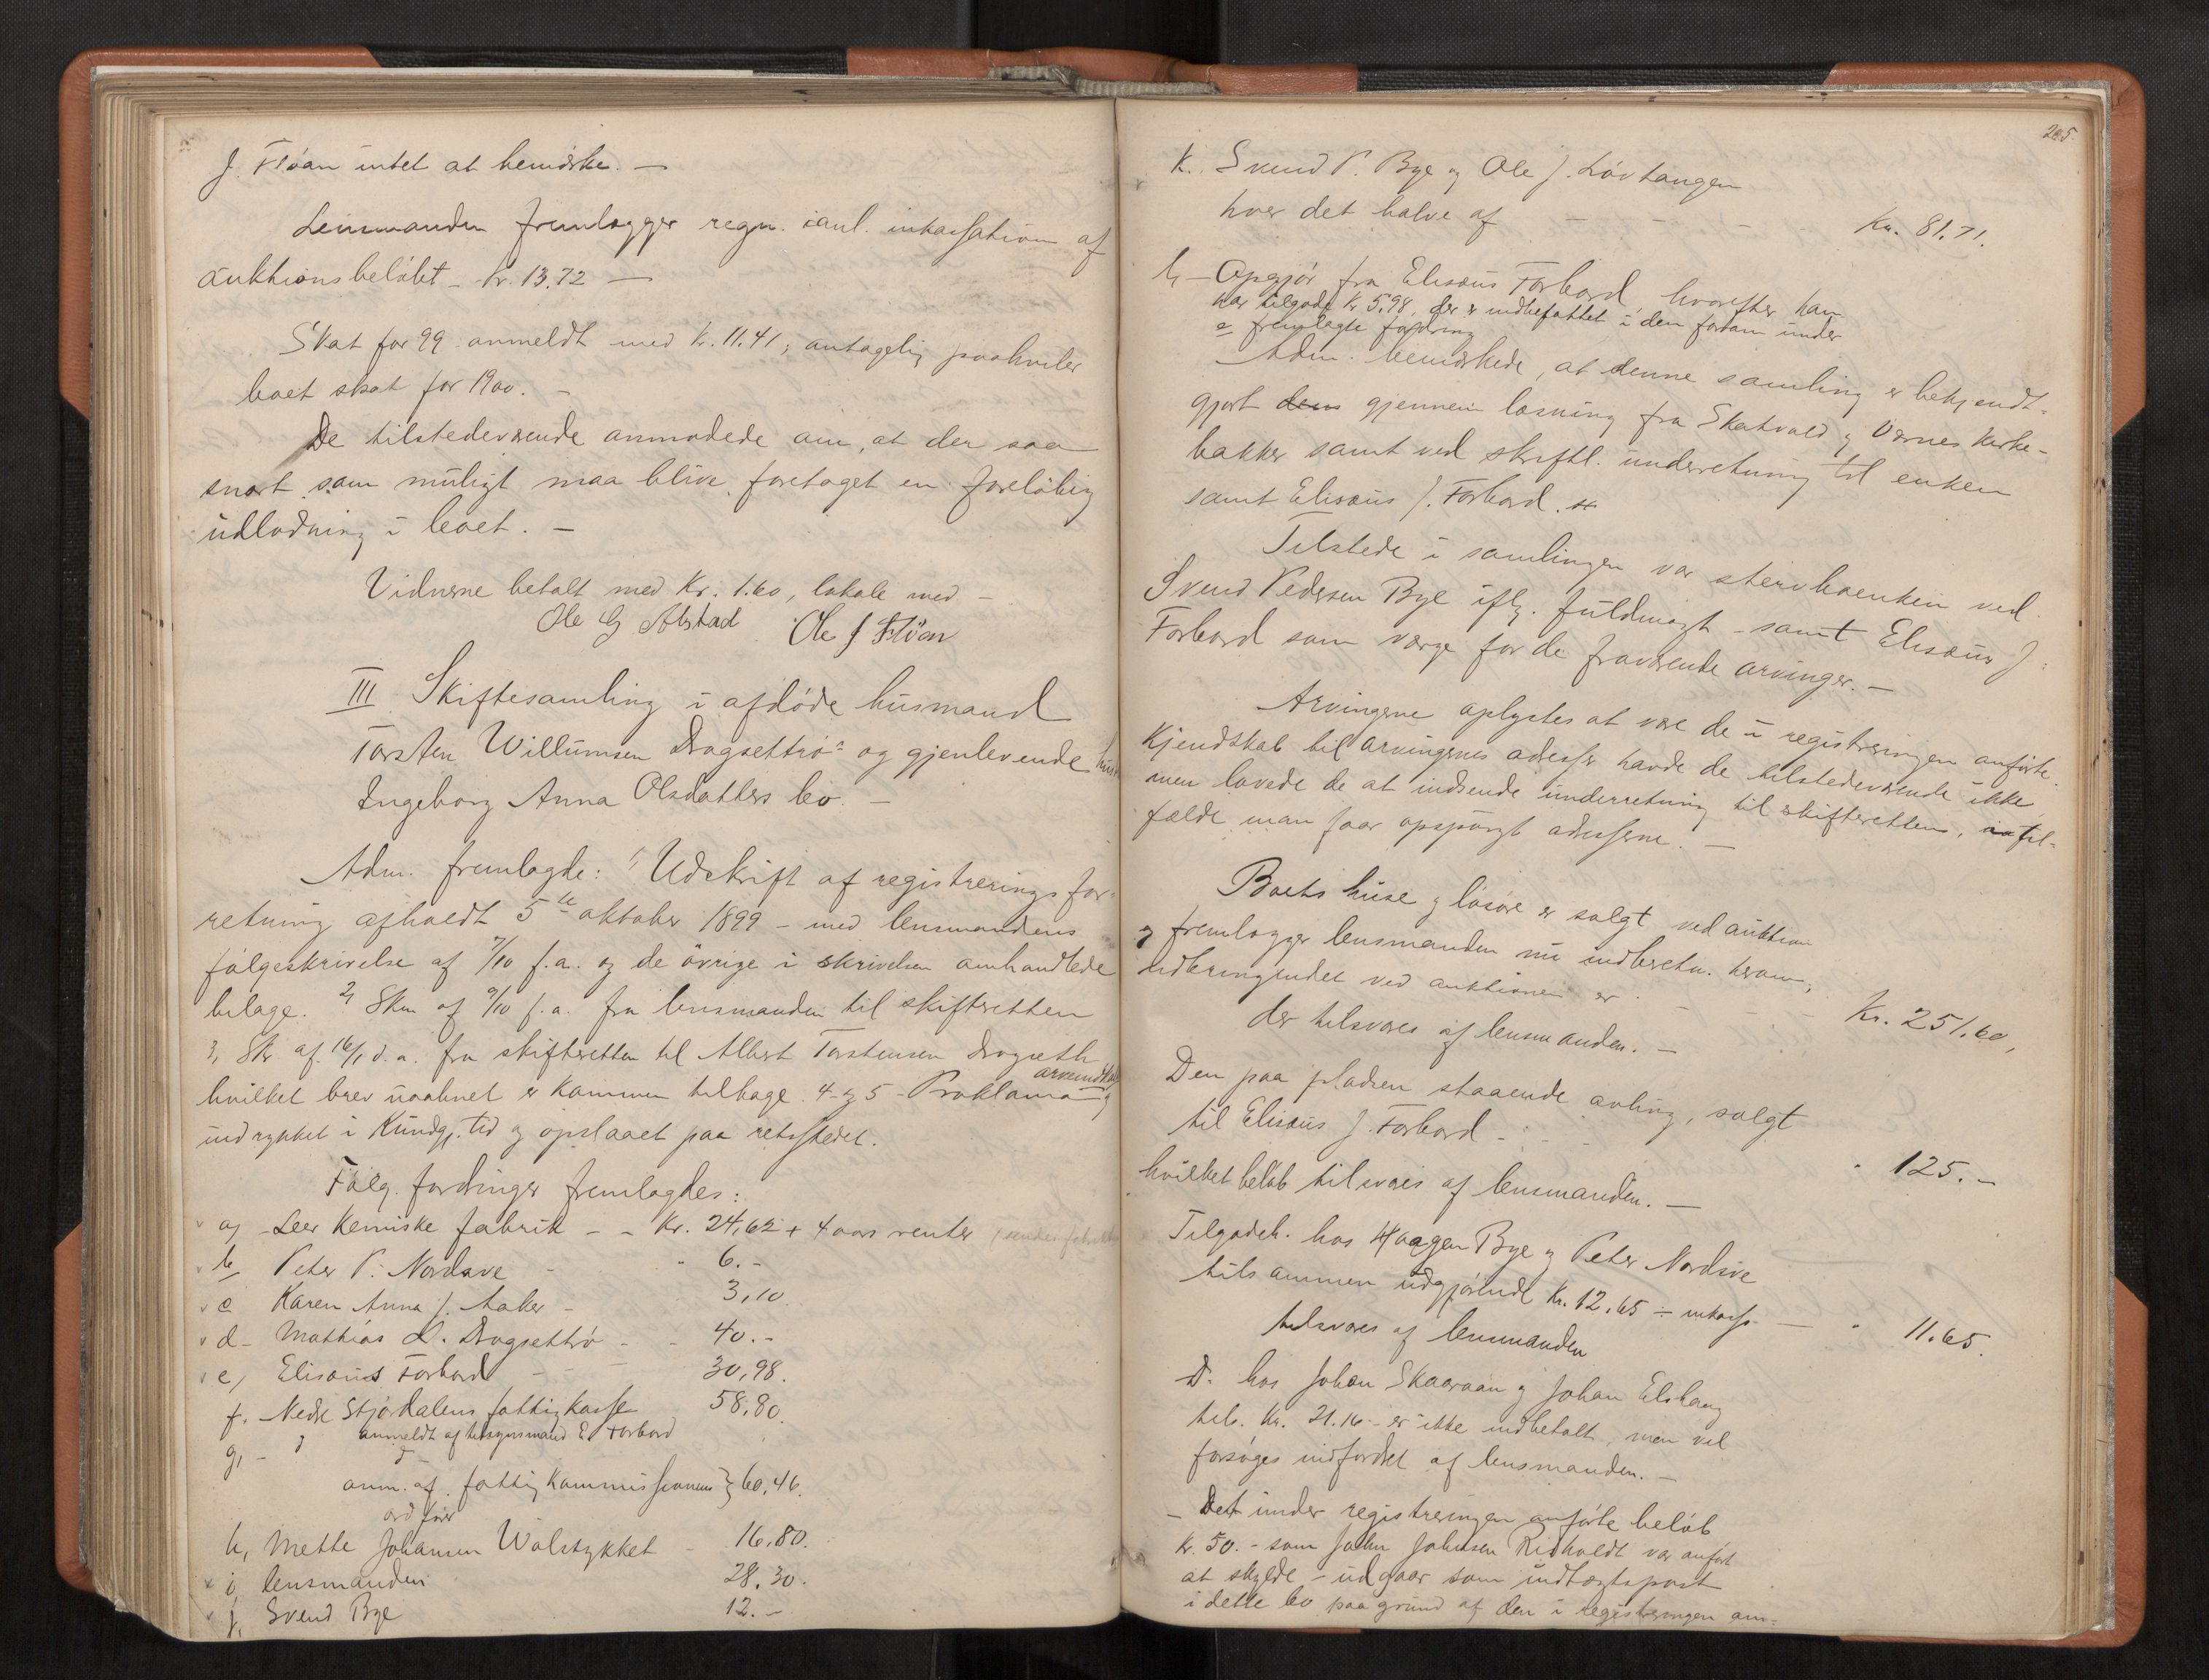 J. Fløan intet at bemærke. —
Lensmanden fremlægger regn. ianl. inkassation af
auktionsbeløbet - kr. 13.72 —
Skat for 99 anmeldt med kr. 11.41; antagelig paahviler
boet skat for 1900. —
De tilstedeværende anmodede om, at der saa
snart som muligt maa blive foretaget en foreløbig
udlodning i boet. —
Vidnerne betalt med Kr. 1.60, lokale med —
Ole G Alstad Ole J Fløan
III Skiftesamling i afdøde husmand
Torsten Willumsen Drogsettrø og gjenlevende
Ingeborg Anna Olsdatters bo. —
Adm. fremlagde: 1, Udskrift af registreringsfor-
retning afholdt 5te oktober 1899 - med lensmandens
følgeskrivelse af 7/10 f.a. og de øvrige i skrivelsen omhandlede
bilage. 2, Skr. af 9/10 f.a. fra lensmanden til skifteretten
3, Skr af 16/1 d.a. fra skifteretten til Albert Torstensen Drogseth
hvilket brev uaabnet er kommen tilbage. 4 og 5 - Proklama
indrykket i Kundgj. tid og opslaaet paa retsstedet.
Følg. fordringer fremlagdes:
a, Leer kemiske fabrik - - Kr. 24,62 + 4 aars renter
b Peter P. Nordsve - " 6.-
c Karen Anna J. Aaker - 3,10
d - Mathias O. Drogsettrø - - 40.-
e, Elisæus Forbord - - 30,98.
f. Nedre Stjørdalens fattigkasse 58,80.
anmeldt af tilsynsmand E. Forbord
g, - d
anm. af fattigkommissionens } 60,46.
ordfører
h, Mette Johansen Wolstykket - 16,80.
i lensmanden 28,30.
j, Svend Bye 12.-
205.
K. Svend P. Bye og Ole J. Løvtangen
hver det halve af - - - Kr. 81.71.
l, - Opgjør fra Elisæus Forbord, hvorefter han
har tilgode kr 5,98, der er indbefattet i den foran under
e fremlagte fordring
Adm. bemærkede, at denne samling er bekjendt-
gjort gjennem læsning fra Skatvald og Værnes kirke-
bakker samt ved skriftl. underretning til enken
samt Elisæus J. Forbord.
Tilstede i samlingen var stervboenken ved
Svend Pedersen Bye iflg. fuldmagt - samt Elisæus J.
Forbord som værge for de fraværende arvinger. —
Arvingerne oplystes at være de i registreringen anførte
Kjendskab til arvingernes adresser havde de tilstedeværende ikke
men lovede de at indsende underretning til skifteretten, i til-
fælde man faar opspurgt adresserne. —
Boets huse og løsøre er solgt ved auktion
og fremlægger lensmanden nu indberetn. herom;
udbringendet ved auktionen er - - Kr. 251.60,
der tilsvares af lensmanden. —
Den paa pladsen staaende avling, solgt
til Elisæus J. Forbord - - - " 125.-
hvilket beløb tilsvares af lensmanden. —
Tilgodeh. hos Haagen Bye og Peter Nordsve
tilsammen udgjørende Kr. 12.65 ÷ inkass. — " 11.65.
tilsvares af lensmanden
D. hos Johan Skaaraan og Johan Elshaug
tils. kr. 21.16 - er ikke indbetalt, men vil
forsøges indfordret af lensmanden. —
- Det under registreringen anførte beløb
kr. 50.- som John Johnsen var anført
at skylde - udgaar som indtægtspost
i dette bo paa grund af den i registreringen om-